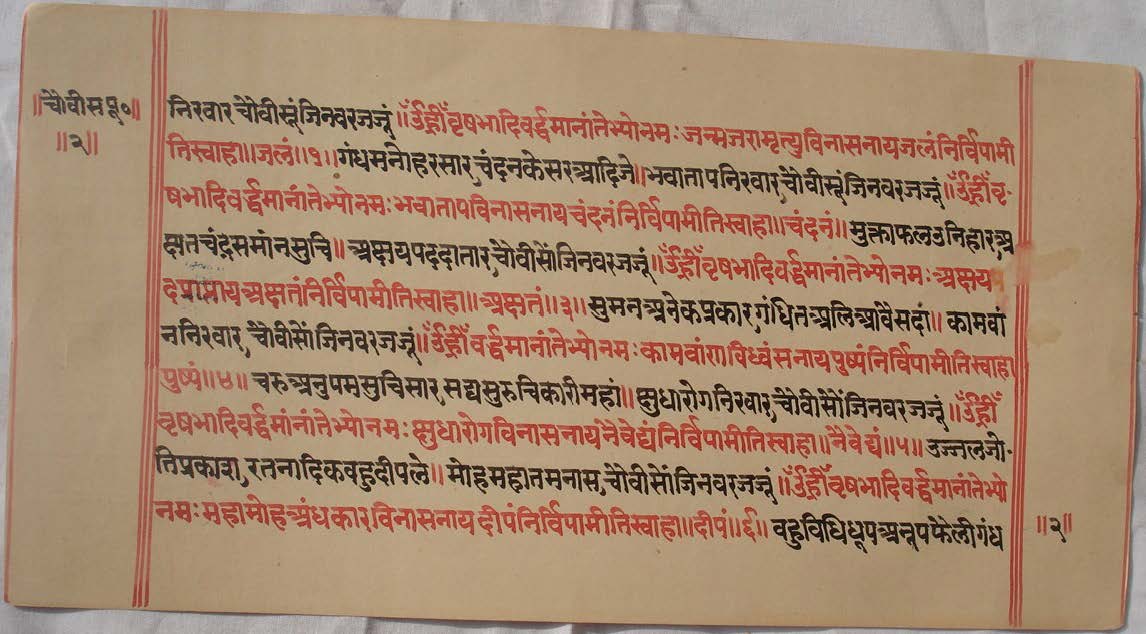 ॥चौवीसपू०॥
॥२॥
निरवार चौवीसूंजिनवरजजूं॥ॐह्रीँवृषभादिवर्द्धमानांतेभ्योनमः जन्मजरामृत्युविनासनायजलंनिर्विपामी
तिस्वाहा॥जलं॥१॥गंधमनोहरसार चंदनकेसरआदिजे॥भवातापनिरवार चौवीसूंजिनवरजजूं॥ॐह्रीँवृ-
षभादिवर्द्धमानांतेभ्योनमः भवातापविनासनायचंदनंनिर्विपामीतिस्वाहा॥चंदनं॥ मुक्ताफलउनिहारअ
क्षतचंद्रसमांनसुचि॥ अक्षयपददातार चौवीसोंजिनवरजजूं॥ॐह्रीँवृषभादिवर्द्धमानांतेभ्योनमः अक्षयप
दप्राप्तायअक्षतंनिर्विपामीतिस्वाहा॥अक्षतं॥३॥ सुमनअनेकप्रकार गंधितअलिआवैसदां॥ कामवां
ननिरवार चौवीसोंजिनवरजजूं॥ॐह्रीँवर्द्धमानांतेभ्योनमः कामवांणविध्वंसनायपुष्पंनिर्विपामीतिस्वाहा
पुष्पं॥४॥ चरुअनुपमसुचिसार सद्यसुरुचिकारीमहां॥ क्षुधारोगनिरवार चौवीसोंजिनवरजजूं॥ॐह्रीँ
वृषभादिवर्द्धमांनांतेभ्योनमः क्षुधारोगविनासनायनैवेद्यंनिर्विपामीतिस्वाहा॥नैवेद्यं॥५॥ उज्जलजो-
तिप्रकाश रतनादिकवहुदीपले॥ मोहमहातमनास चौवीसोंजिनवरजजूं॥ॐह्रीँवृषभादिवर्द्धमानांतेभ्यो
नमः महामोहअंधकारविनासनायदीपंनिर्विपामीतिस्वाहा॥दीपं॥६॥ वहुविधिधूपअनूपफैलीगंध
॥२॥